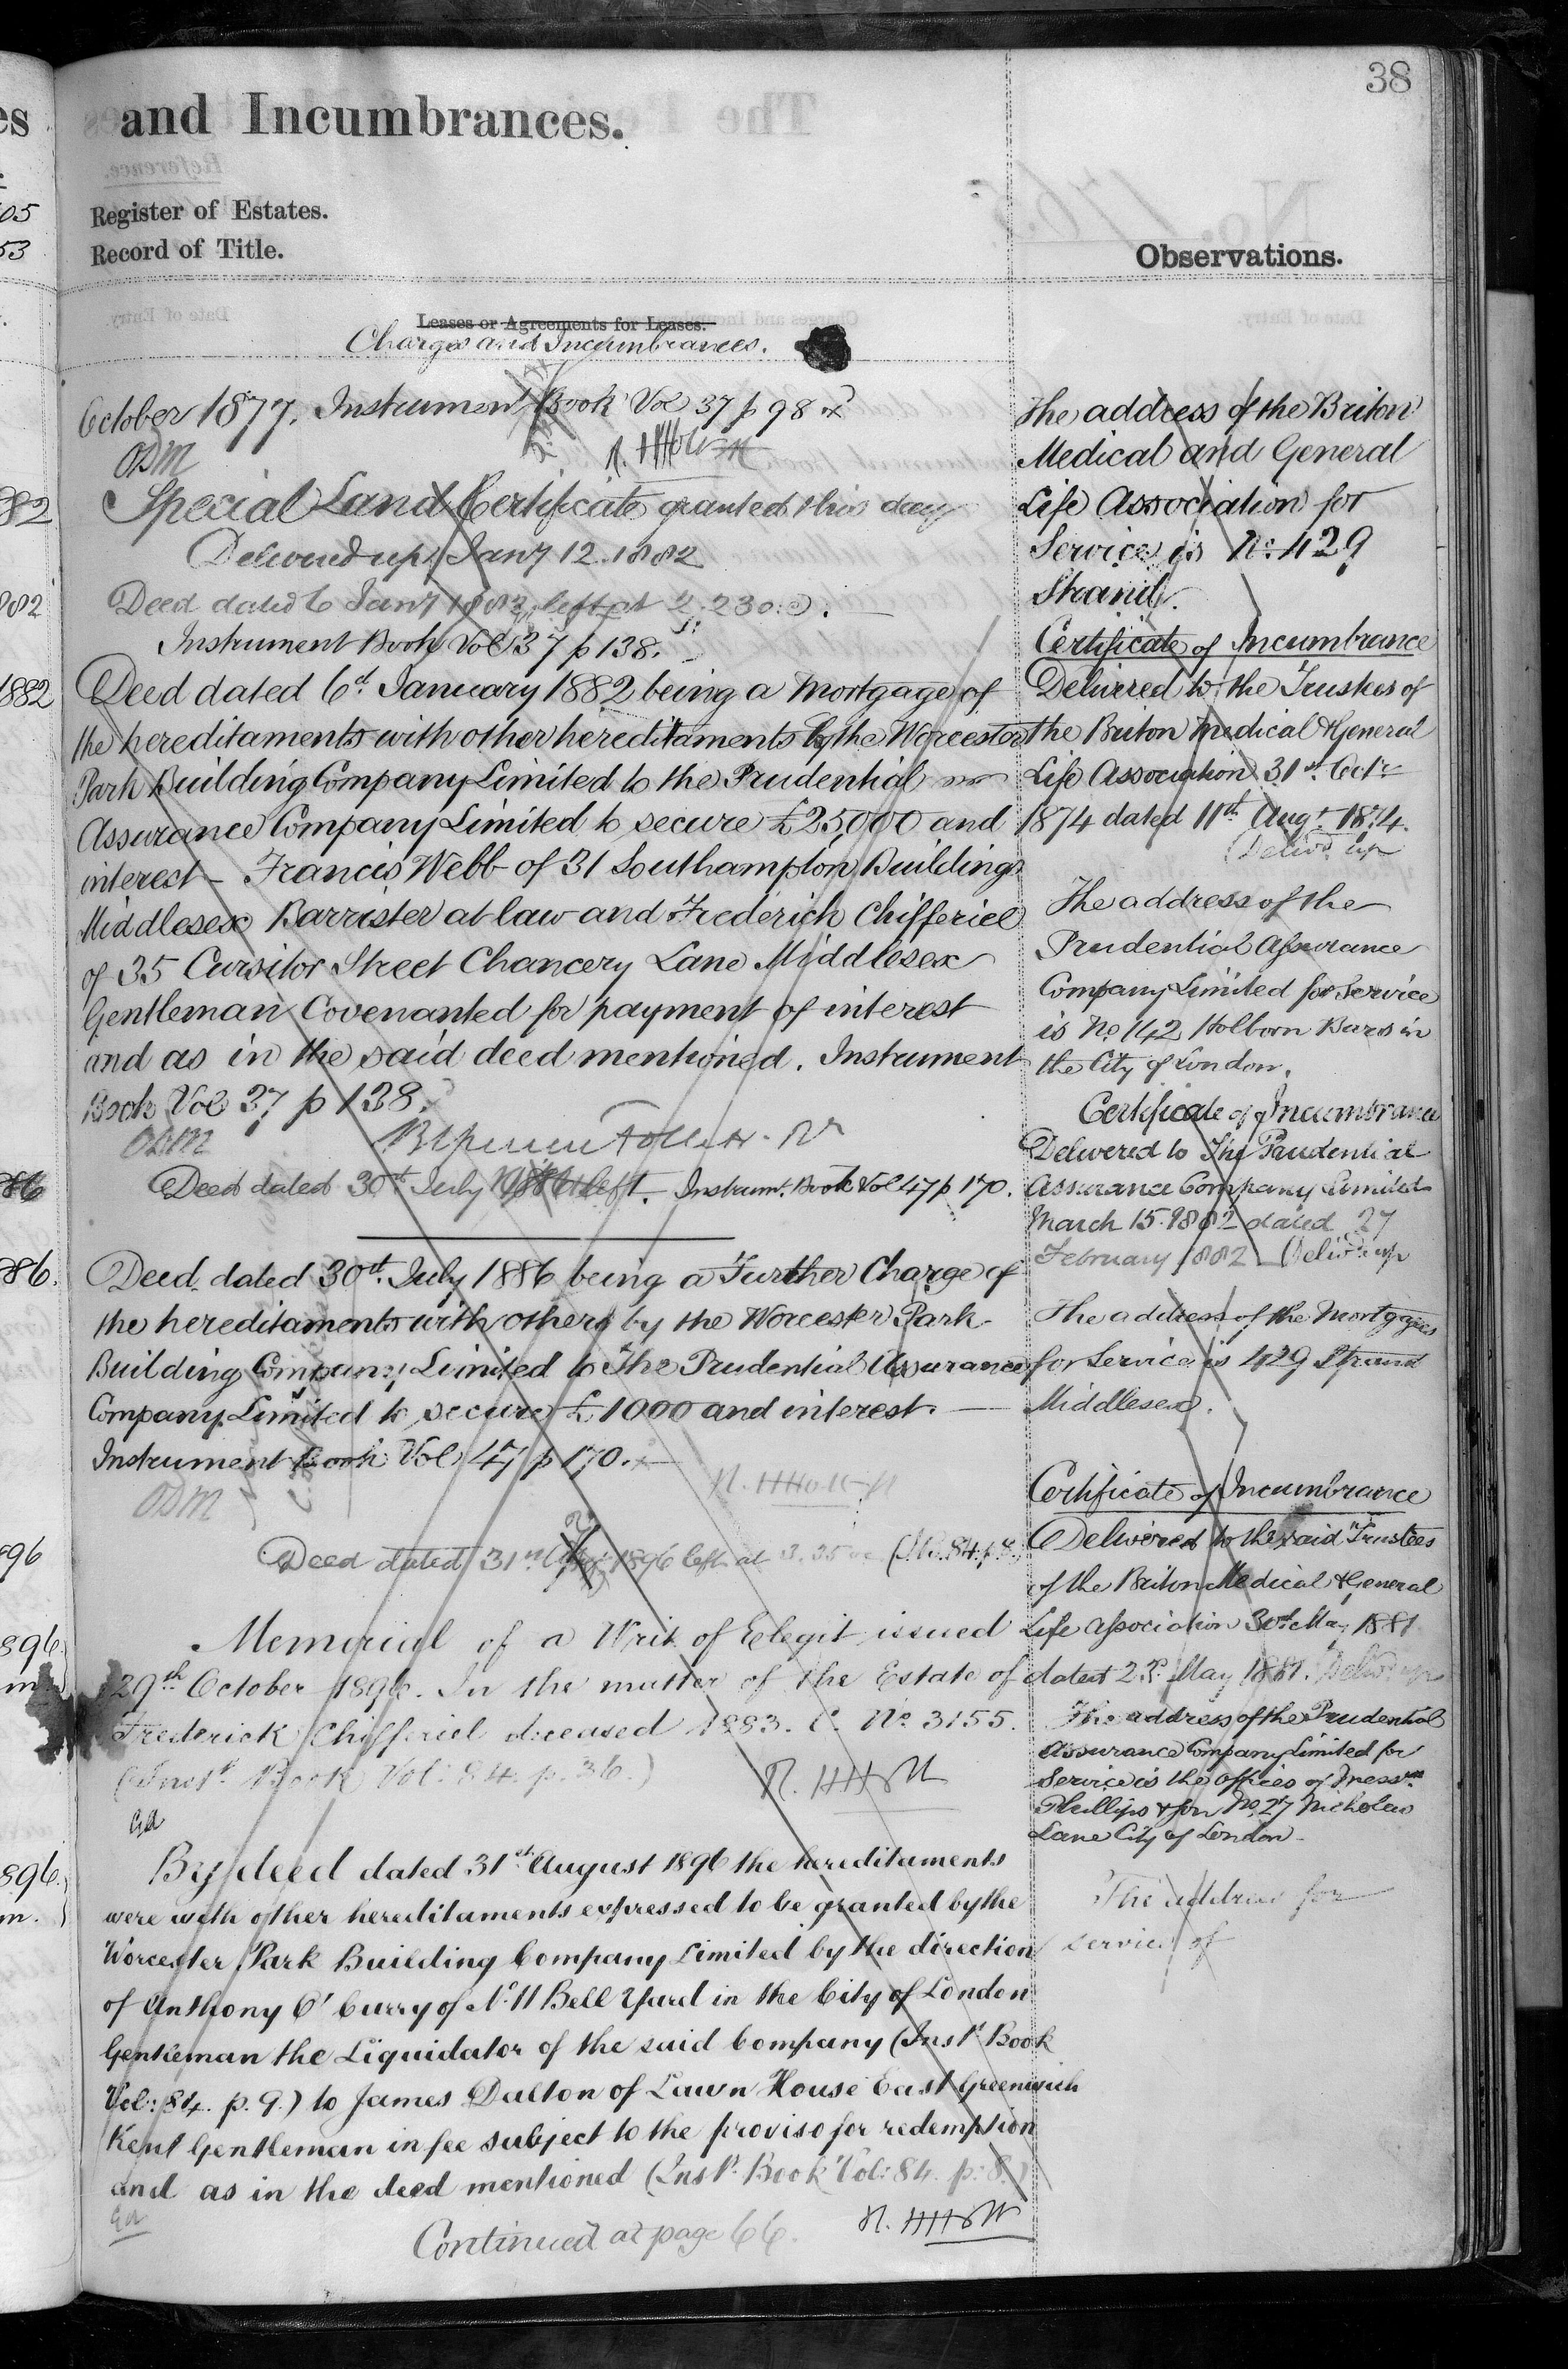 38
and Incumbrances.
Register of Estates.
Record of Title.
Observations.
Leases or Agreements for Leases.
Charges and Incumbrances.
October 1877. Instrument Book Vol 37 p 98
ODM
Special Land Certificate granted this day
Delivered up Jany 12. 1882
Deed dated 6 Jany 1882 left at 2.30
Instrument Book Vol 37 p 138.
Deed dated 6th January 1882 being a Mortgage of
the hereditaments with other hereditaments by the Worcester
Park Building Company Limited to the Prudential
Assurance Company Limited to secure £25,000 and
interest – Francis Webb of 31 Southampton Buildings
Middlesex Barrister at law and Frederick Chifferiel
of 35 Cursitor Street Chancery Lane Middlesex
Gentleman Covenanted for payment of interest
and as in the said deed mentioned. Instrument
Book Vol 37 p 138.
ODM
Deed dated 30th July 1886 left. Instrumt. Book Vol 47 p 170.
Deed dated 30th July 1886 being a Further Charge of
the hereditaments with others by the Worcester Park
Building Company Limited to The Prudential Assurance
Company Limited to secure £1000 and interest. —
Instrument Book Vol 47 p 170.
ODM
Deed dated 31st 1896 left at 3.35
Memorial of a Writ of Elegit issued
29th October 1896. In the matter of the Estate of
Frederick Chifferiel deceased 1883. C. No. 3155.
(Instt. Book Vol: 84. p. 36.)
By deed dated 31st August 1896 the hereditaments
were with other hereditaments expressed to be granted by the
Worcester Park Building Company Limited by the direction
of Anthony O'Curry of No. 11 Bell Yard in the City of London
Gentleman the Liquidator of the said Company (Inst. Book
Vol: 84. p. 9.) to James Dalton of Lawn House East Greenwich
Kent Gentleman in fee subject to the proviso for redemption
and as in the deed mentioned (Inst. Book Vol: 84. p: 8.)
Continued at page 66.
The address of the Briton
Medical and General
Life Association for
Service is No. 429
Strand.
Certificate of Incumbrance
Delivered to the Trustees of
the Briton Medical & General
Life Association 31st Octr
1874 dated 11th Augt. 1874.
Delivd. up
The address of the
Prudential Assurance
Company Limited for Service
is No. 142 Holborn Bars in
the City of London.
Certificate of Incumbrance
Delivered to The Prudential
Assurance Company Limited
March 15. 1882 dated 27
February 1882 Delivd. up
The address of the Mortgagees
for Service is 429 Strand
Middlesex.
Certificate of Incumbrance
Delivered to the said Trustees
of the Briton Medical & General
Life Association 30th May 1881
dated May 1881. Delivd. up
The address of the Prudential
Assurance Company Limited for
Service is the offices of Messrs.
Phillips & Son No. 27 Nicholas
Lane City of London.
The address for
service of